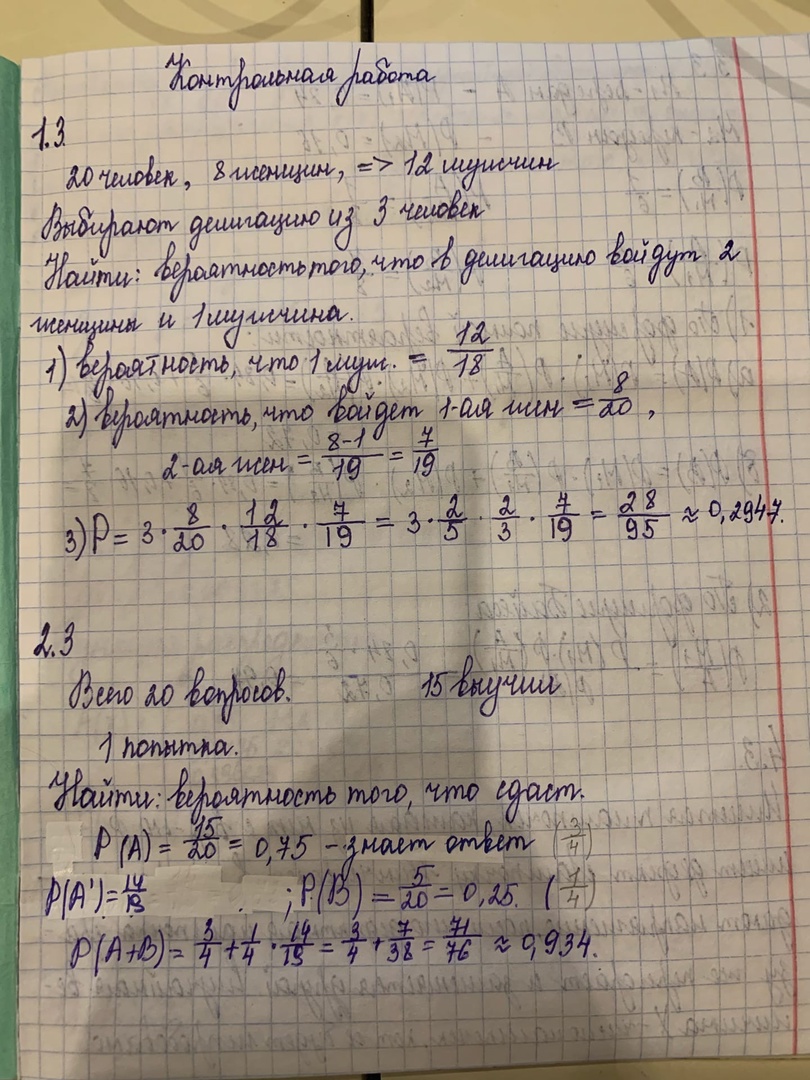 Контрольная работа
1.3
20 человек, 8 женщин, => 12 мужчин
Выбирают делигацию из 3 человек
Найти: вероятность того, что в делигацию войдут 2
женщины и 1 мужчина.
1) вероятность, что 1 муж. = 12/18
2) вероятность, что войдет 1-ая жен = 8/20,
2-ая жен = 8-1/19 = 7/19
3) P = 3 · 8/20 · 12/18 · 7/19 = 3 · 2/5 · 2/3 · 7/19 = 28/95 ≈ 0,2947.
2.3
Всего 20 вопросов. 15 выучил
1 попытка.
Найти: вероятность того, что сдаст.
P(A) = 15/20 = 0,75 – знает ответ (3/4)
P(A') = 14/19 ; P(B) = 5/20 = 0,25. (1/4)
P(A+B) = 3/4 + 1/4 · 14/19 = 3/4 + 7/38 = 71/76 ≈ 0,934.